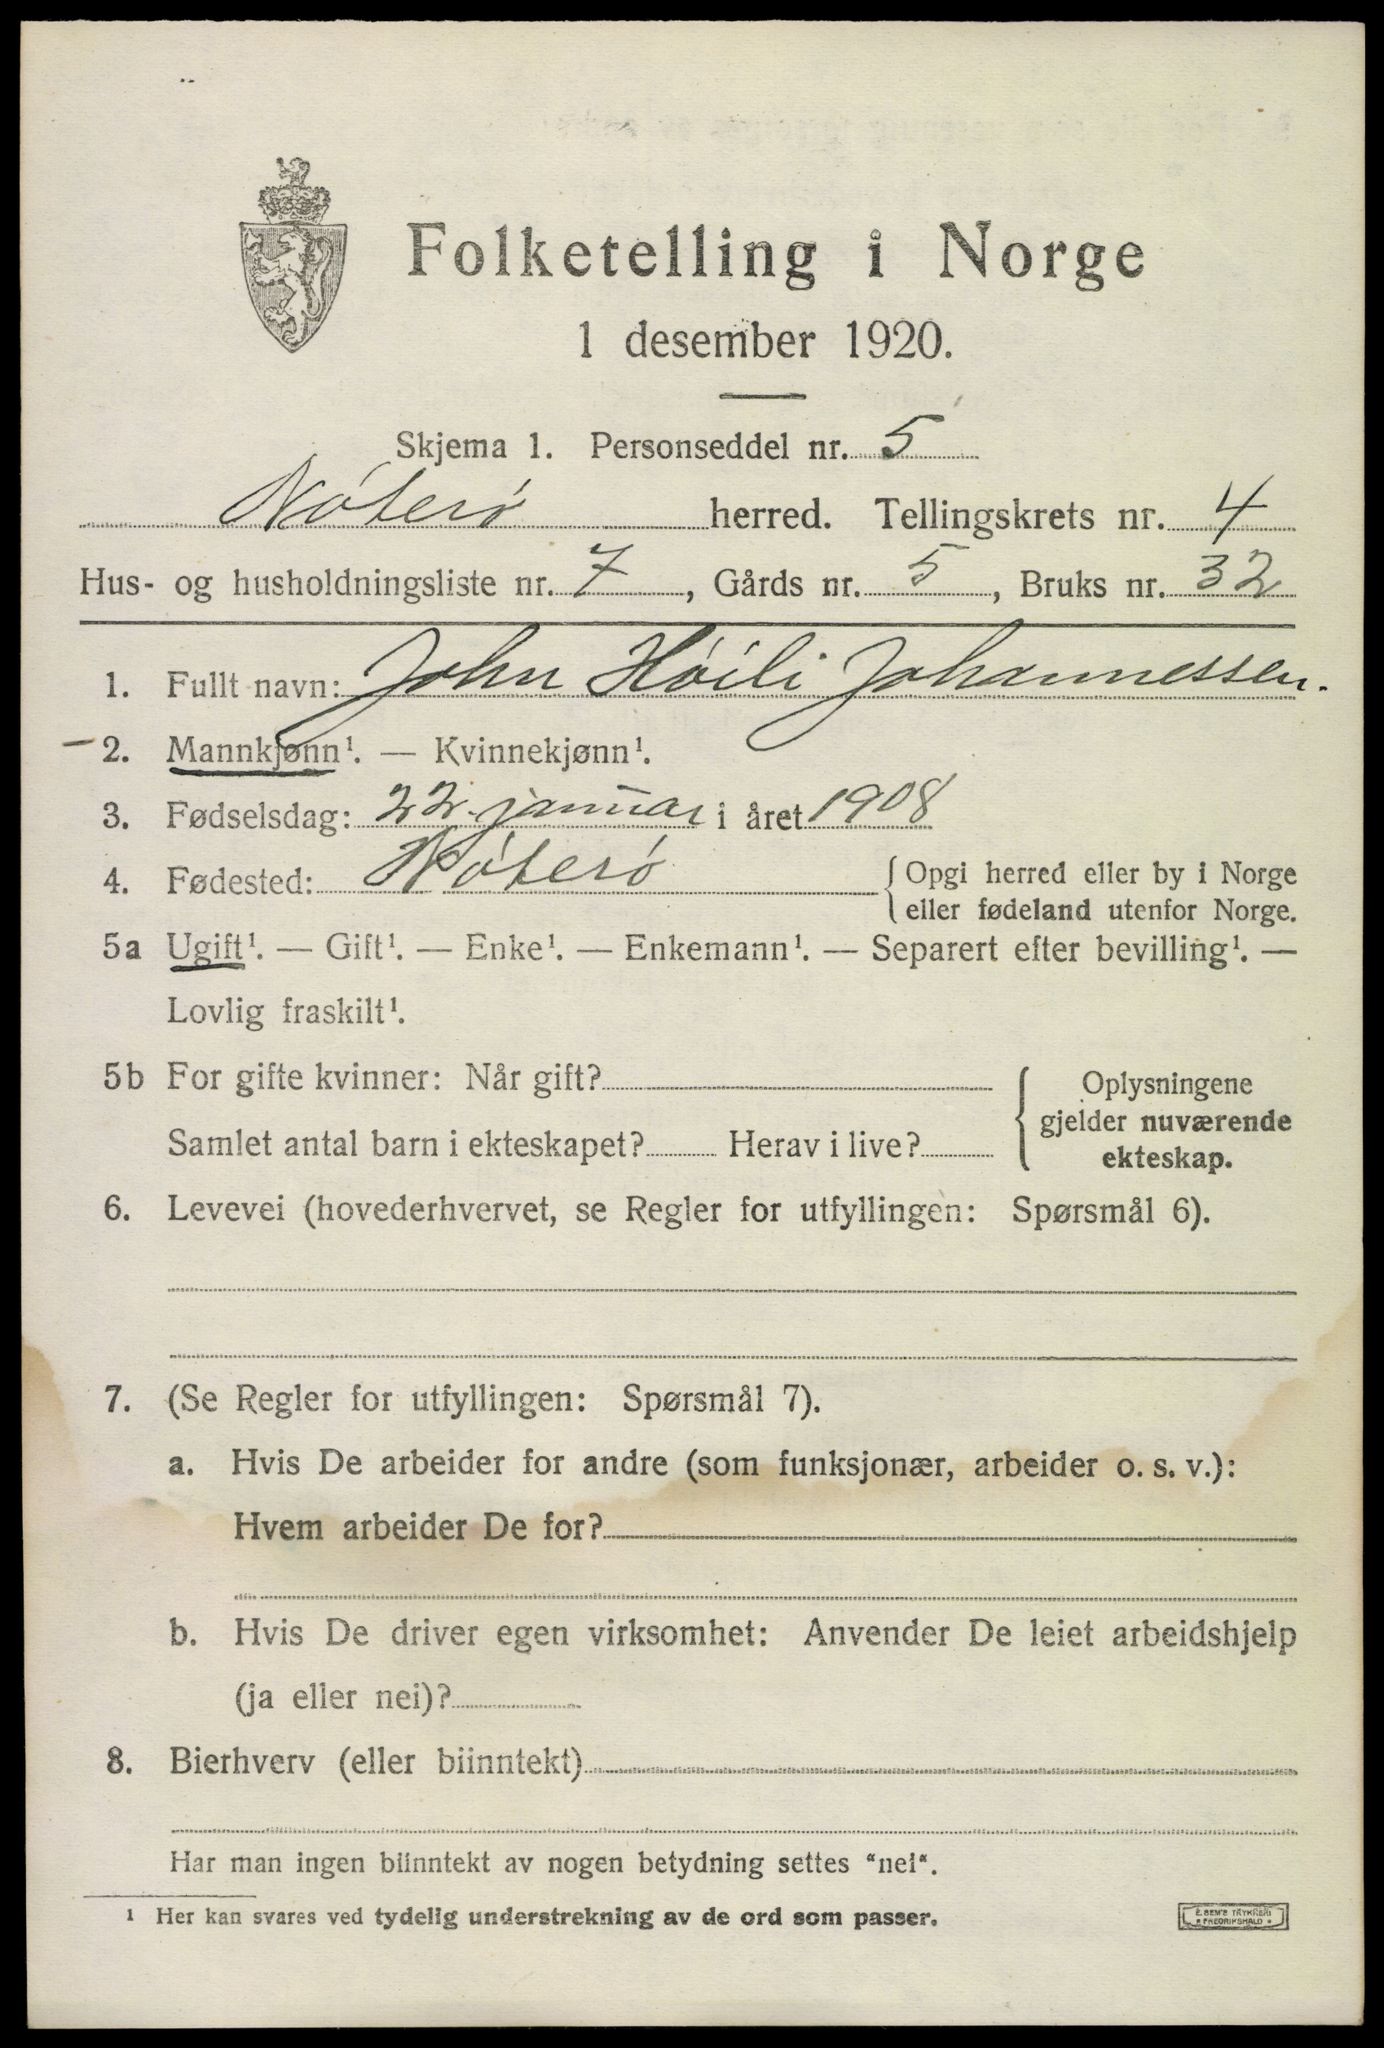 Folketelling i Norge
1 desember 1920.
Skjema 1. Personseddel nr. 5
Nøterø herred. Tellingskrets nr. 4
Hus- og husholdningsliste nr. 7, Gårds nr. 5, Bruks nr. 32
1. Fullt navn: John Høili Johannessen.
2. Mannkjønn¹. — Kvinnekjønn¹.
3. Fødselsdag: 22. januar i året 1908
4. Fødested: Nøterø { Opgi herred eller by i Norge
eller fødeland utenfor Norge.
5a Ugift¹. — Gift¹. — Enke¹. — Enkemann¹. — Separert efter bevilling¹. —
Lovlig fraskilt¹.
5b For gifte kvinner: Når gift? { Oplysningene
gjelder nuværende
Samlet antal barn i ekteskapet? Herav i live? ekteskap.
6. Levevei (hovederhvervet, se Regler for utfyllingen: Spørsmål 6).
7. (Se Regler for utfyllingen: Spørsmål 7).
a. Hvis De arbeider for andre (som funksjonær, arbeider o. s. v.):
Hvem arbeider De for?
b. Hvis De driver egen virksomhet: Anvender De leiet arbeidshjelp
(ja eller nei)?
8. Bierhverv (eller biinntekt)
Har man ingen biinntekt av nogen betydning settes “nei“.
¹ Her kan svares ved tydelig understrekning av de ord som passer.
E. SEM'S TRYKKERI
FREDRIKSHALD